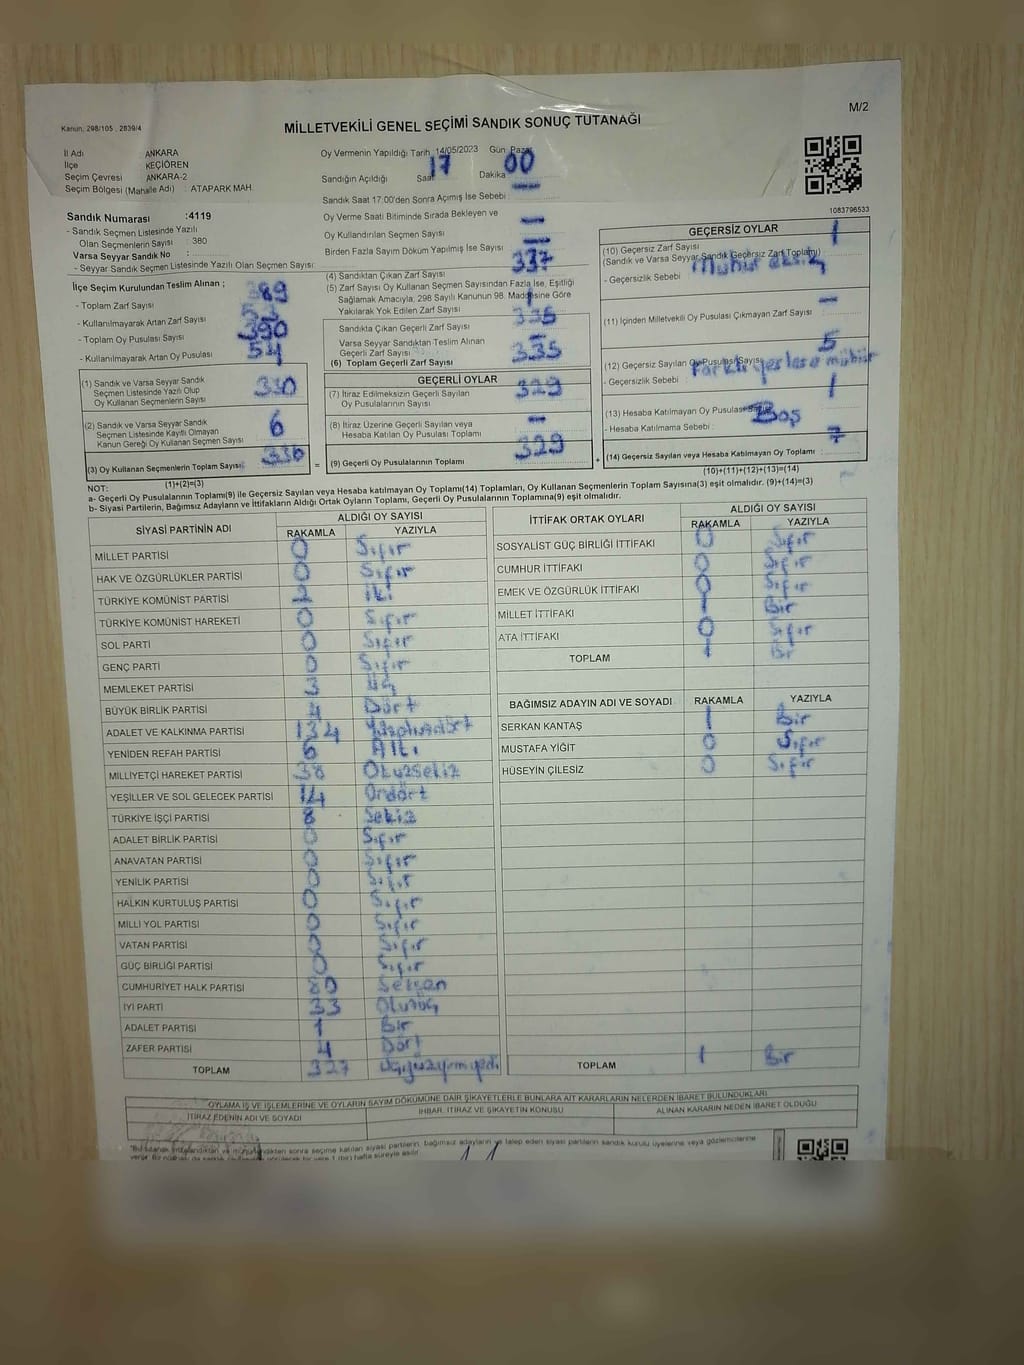 M/2
Kanun, 298/105 , 2839/4
MİLLETVEKİLİ GENEL SEÇİMİ SANDIK SONUÇ TUTANAĞI
İl Adı ANKARA
İlçe KEÇİÖREN
Seçim Çevresi ANKARA-2
Seçim Bölgesi (Mahalle Adı) : ATAPARK MAH.
Oy Vermenin Yapıldığı Tarih 14/05/2023 Gün Pazar
Sandığın Açıldığı Saat 17 Dakika 00
Sandık Saat 17:00'den Sonra Açılmış İse Sebebi : —
Oy Verme Saati Bitiminde Sırada Bekleyen ve
Oy Kullandırılan Seçmen Sayısı —
Birden Fazla Sayım Döküm Yapılmış İse Sayısı —
1083796533
Sandık Numarası :4119
- Sandık Seçmen Listesinde Yazılı
Olan Seçmenlerin Sayısı : 380
Varsa Seyyar Sandık No :
- Seyyar Sandık Seçmen Listesinde Yazılı Olan Seçmen Sayısı:
İlçe Seçim Kurulundan Teslim Alınan ;
- Toplam Zarf Sayısı 389
- Kullanılmayarak Artan Zarf Sayısı
- Toplam Oy Pusulası Sayısı 390
- Kullanılmayarak Artan Oy Pusulası 54
(1) Sandık ve Varsa Seyyar Sandık
Seçmen Listesinde Yazılı Olup
Oy Kullanan Seçmenlerin Sayısı 330
(2) Sandık ve Varsa Seyyar Sandık
Seçmen Listesinde Kayıtlı Olmayan
Kanun Gereği Oy Kullanan Seçmen Sayısı 6
(3) Oy Kullanan Seçmenlerin Toplam Sayısı: 336
(1)+(2)=(3)
(4) Sandıktan Çıkan Zarf Sayısı 337
(5) Zarf Sayısı Oy Kullanan Seçmen Sayısından Fazla İse, Eşitliği
Sağlamak Amacıyla, 298 Sayılı Kanunun 98. Maddesine Göre
Yakılarak Yok Edilen Zarf Sayısı 1
Sandıkta Çıkan Geçerli Zarf Sayısı 335
Varsa Seyyar Sandıktan Teslim Alınan
Geçerli Zarf Sayısı —
(6) Toplam Geçerli Zarf Sayısı 335
GEÇERLİ OYLAR
(7) İtiraz Edilmeksizin Geçerli Sayılan
Oy Pusulalarının Sayısı 329
(8) İtiraz Üzerine Geçerli Sayılan veya
Hesaba Katılan Oy Pusulası Toplamı —
= (9) Geçerli Oy Pusulalarının Toplamı 329 +
GEÇERSİZ OYLAR
(10) Geçersiz Zarf Sayısı 1
(Sandık ve Varsa Seyyar Sandık Geçersiz Zarf Toplamı)
- Geçersizlik Sebebi Mühür eksiz
(11) İçinden Milletvekili Oy Pusulası Çıkmayan Zarf Sayısı —
(12) Geçersiz Sayılan Oy Pusulası Sayısı 5
- Geçersizlik Sebebi Farklı yerlere mühür
(13) Hesaba Katılmayan Oy Pusulası Sayısı 1
- Hesaba Katılmama Sebebi : Boş
(14) Geçersiz Sayılan veya Hesaba Katılmayan Oy Toplamı : 7
(10)+(11)+(12)+(13)=(14)
NOT:
a- Geçerli Oy Pusulasının Toplamı(9) ile Geçersiz Sayılan veya Hesaba katılmayan Oy Toplamı(14) Toplamları, Oy Kullanan Seçmenlerin Toplam Sayısına(3) eşit olmalıdır. (9)+(14)=(3)
b- Siyasi Partilerin, Bağımsız Adayların ve İttifakların Aldığı Ortak Oyların Toplamı, Geçerli Oy Pusulalarının Toplamına(9) eşit olmalıdır.
SİYASİ PARTİNİN ADI ALDIĞI OY SAYISI
RAKAMLA YAZIYLA
MİLLET PARTİSİ 0 Sıfır
HAK VE ÖZGÜRLÜKLER PARTİSİ 0 Sıfır
TÜRKİYE KOMÜNİST PARTİSİ 2 İki
TÜRKİYE KOMÜNİST HAREKETİ 0 Sıfır
SOL PARTİ 0 Sıfır
GENÇ PARTİ 0 Sıfır
MEMLEKET PARTİSİ 3 Üç
BÜYÜK BİRLİK PARTİSİ 4 Dört
ADALET VE KALKINMA PARTİSİ 134 Yüzotuzdört
YENİDEN REFAH PARTİSİ 6 Altı
MİLLİYETÇİ HAREKET PARTİSİ 38 Otuzsekiz
YEŞİLLER VE SOL GELECEK PARTİSİ 14 Ondört
TÜRKİYE İŞÇİ PARTİSİ 8 Sekiz
ADALET BİRLİK PARTİSİ 0 Sıfır
ANAVATAN PARTİSİ 0 Sıfır
YENİLİK PARTİSİ 0 Sıfır
HALKIN KURTULUŞ PARTİSİ 0 Sıfır
MİLLİ YOL PARTİSİ 0 Sıfır
VATAN PARTİSİ 0 Sıfır
GÜÇ BİRLİĞİ PARTİSİ 0 Sıfır
CUMHURİYET HALK PARTİSİ 80 Seksan
İYİ PARTİ 33 Otuzüç
ADALET PARTİSİ 1 Bir
ZAFER PARTİSİ 4 Dört
TOPLAM 327 Üçyüzyirmiyedi
İTTİFAK ORTAK OYLARI ALDIĞI OY SAYISI
RAKAMLA YAZIYLA
SOSYALİST GÜÇ BİRLİĞİ İTTİFAKI 0 Sıfır
CUMHUR İTTİFAKI 0 Sıfır
EMEK VE ÖZGÜRLÜK İTTİFAKI 0 Sıfır
MİLLET İTTİFAKI 1 Bir
ATA İTTİFAKI 0 Sıfır
TOPLAM 1 Bir
BAĞIMSIZ ADAYIN ADI VE SOYADI RAKAMLA YAZIYLA
SERKAN KANTAŞ 1 Bir
MUSTAFA YİĞİT 0 Sıfır
HÜSEYİN ÇİLESİZ 0 Sıfır
TOPLAM 1 Bir
OYLAMA İŞ VE İŞLEMLERİNE VE OYLARIN SAYIM DÖKÜMÜNE DAİR ŞİKAYETLERLE BUNLARA AİT KARARLARIN NELERDEN İBARET BULUNDUKLARI
İTİRAZ EDENİN ADI VE SOYADI İHBAR, İTİRAZ VE ŞİKAYETİN KONUSU ALINAN KARARIN NEDEN İBARET OLDUĞU